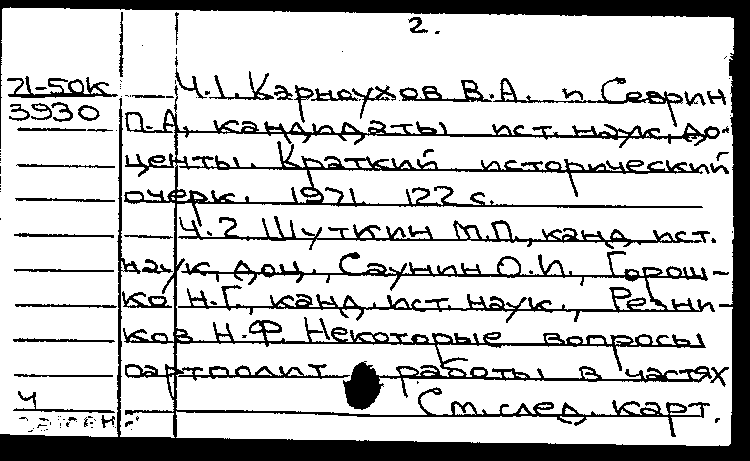 2.
71-50К
3930
Ч.1. Карноухов В.А. и Севрин
П.А, кандидаты ист. наук, до-
центы. Краткий исторический
очерк. 1971. 122 с.
Ч.2. Шуткин М.П., канд. ист.
наук, доц., Саунин О.И., Горош-
ко Н.Г., канд. ист. наук., Резни-
ков Н.Ф. Некоторые вопросы
партполит работы в частях
Ч
См. след. карт.